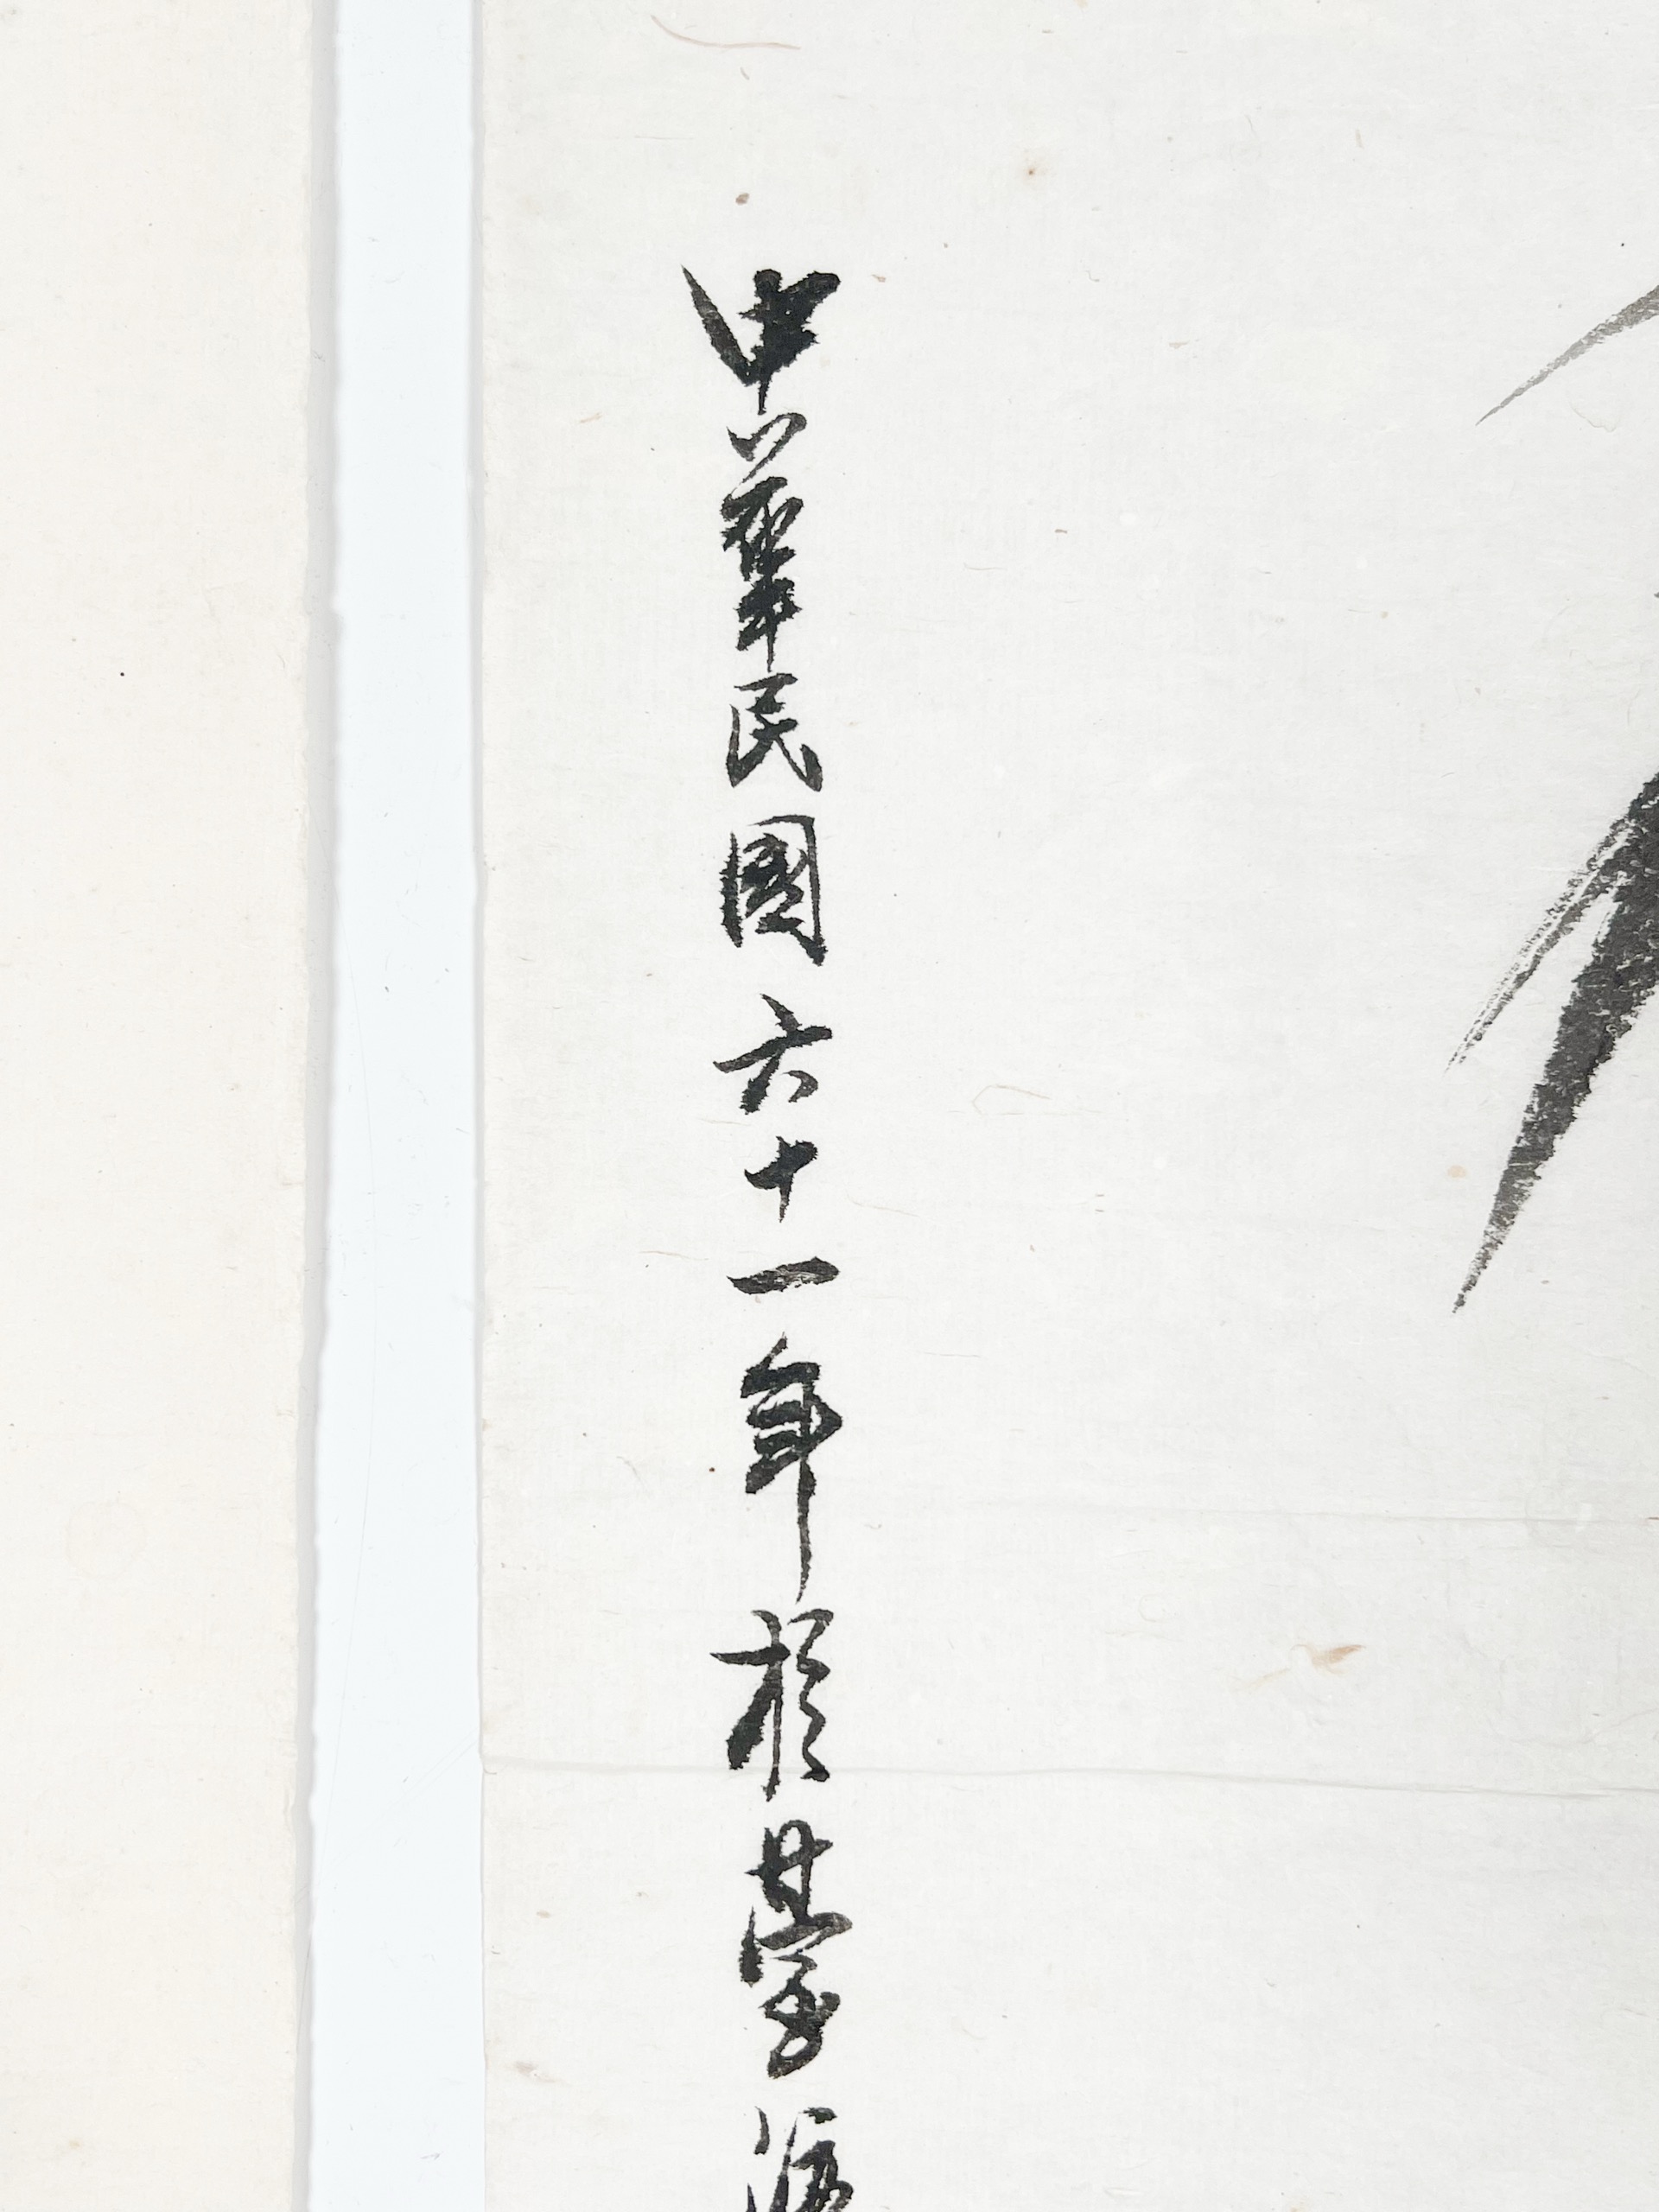 中華民國六十一年於